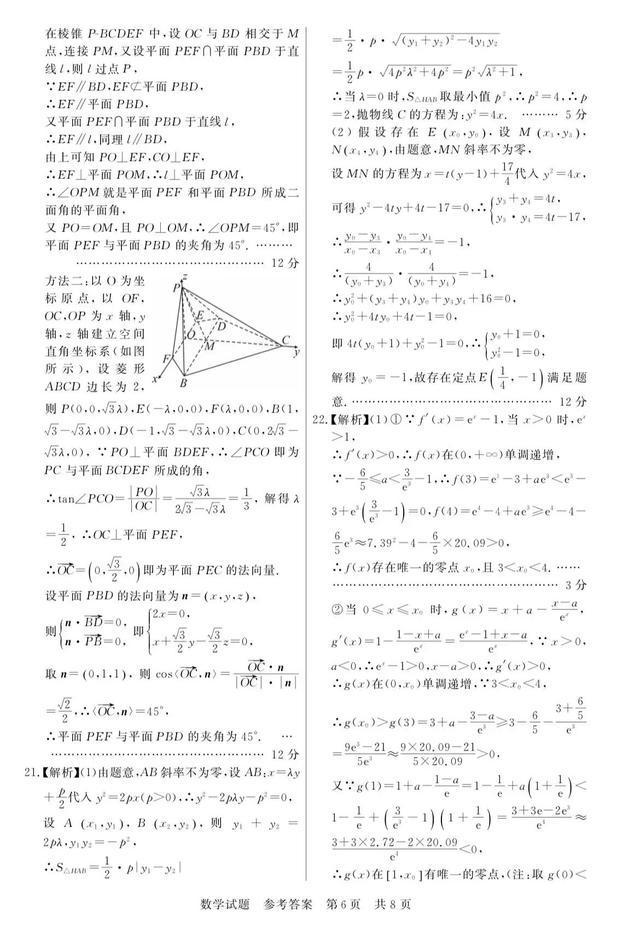 在棱锥 P-BCDEF 中,设 OC 与 BD 相交于 M
点,连接 PM,又设平面 PEF∩平面 PBD 于直
线 l,则 l 过点 P,
∵EF∥BD,EF⊄平面 PBD,
∴EF∥平面 PBD,
又平面 PEF∩平面 PBD 于直线 l,
∴EF∥l,同理 l∥BD,
由上可知 PO⊥EF,CO⊥EF,
∴EF⊥平面 POM,∴l⊥平面 POM,
∴∠OPM 就是平面 PEF 和平面 PBD 所成二
面角的平面角,
又 PO=OM,且 PO⊥OM,∴∠OPM=45°,即
平面 PEF 与平面 PBD 的夹角为 45°. ………
………………………………… 12 分
方法二:以 O 为坐
标原点,以 OF,
OC,OP 为 x 轴,y
轴,z 轴建立空间
直角坐标系(如图
所示),设菱形
ABCD 边长为 2,
P
z
E
D
O
M
C
y
F
x
B
则 P(0,0,√3λ),E(-λ,0,0),F(λ,0,0),B(1,
√3-√3λ,0),D(-1,√3-√3λ,0),C(0,2√3-
√3λ,0), ∵PO⊥平面 BDEF,∴∠PCO 即为
PC 与平面 BCDEF 所成的角,
∴tan∠PCO=|PO|/|OC|=√3λ/(2√3-√3λ)=1/3, 解得 λ
=1/2, ∴OC⊥平面 PEF,
∴OC→=(0,√3/2,0)即为平面 PEC 的法向量.
设平面 PBD 的法向量为 n=(x,y,z),
则{n·BD→=0, n·PB→=0, 即{2x=0, x+√3/2 y-√3/2 z=0,
取 n=(0,1,1), 则 cos⟨OC→,n⟩=OC→·n/(|OC→|·|n|)
=√2/2,∴⟨OC→,n⟩=45°,
∴平面 PEF 与平面 PBD 的夹角为 45°. …
………………………………… 12 分
21.【解析】(1)由题意,AB 斜率不为零,设 AB:x=λy
+p/2代入 y²=2px(p>0),∴y²-2pλy-p²=0,
设 A (x₁,y₁), B (x₂,y₂), 则 y₁ + y₂ =
2pλ,y₁y₂=-p²,
∴S△HAB=1/2·p|y₁-y₂|
=1/2·p·√((y₁+y₂)²-4y₁y₂)
=1/2 p·√(4p²λ²+4p²)=p²√(λ²+1),
∴当 λ=0 时,S△HAB取最小值 p²,∴p²=4,∴p
=2,抛物线 C 的方程为:y²=4x. ……… 5 分
(2)假设存在 E (x₀,y₀), 设 M (x₃,y₃),
N(x₄,y₄),由题意,MN 斜率不为零,
设 MN 的方程为 x=t(y-1)+17/4代入 y²=4x,
可得 y²-4ty+4t-17=0,∴{y₃+y₄=4t, y₃·y₄=4t-17,
∴(y₀-y₃)/(x₀-x₃)·(y₀-y₄)/(x₀-x₄)=-1,
∴4/(y₀+y₃)·4/(y₀+y₄)=-1,
∴y₀²+(y₃+y₄)y₀+y₃y₄+16=0,
∴y₀²+4ty₀+4t-1=0,
即 4t(y₀+1)+y₀²-1=0,∴{y₀+1=0, y₀²-1=0,
解得 y₀=-1,故存在定点E(1/4,-1)满足题
意. ………………………………… 12 分
22.【解析】(1)①∵f′(x)=eˣ-1,当 x>0 时,eˣ
>1,
∴f′(x)>0,∴f(x)在(0,+∞)单调递增,
∵-6/5≤a<3/e³-1,∴f(3)=e³-3+ae³<e³-
3+e³(3/e³-1)=0,f(4)=e⁴-4+ae³≥e⁴-4-
6/5e³≈7.39²-4-6/5×20.09>0,
∴f(x)存在唯一的零点 x₀,且 3<x₀<4. ……
………………………………… 3 分
②当 0≤x≤x₀ 时,g(x)=x+a-(x-a)/eˣ,
g′(x)=1-(1-x+a)/eˣ=(eˣ-1+x-a)/eˣ,∵x>0,
a<0,∴eˣ-1>0,x-a>0,∴g′(x)>0,
∴g(x)在(0,x₀)单调递增,∵3<x₀<4,
∴g(x₀)>g(3)=3+a-(3-a)/e³≥3-6/5-(3+6/5)/e³
=(9e³-21)/5e³≈(9×20.09-21)/(5×20.09)>0,
又∵g(1)=1+a-(1-a)/e=1-1/e+a(1+1/e)<
1-1/e+(3/e³-1)(1+1/e)=(3+3e-2e³)/e⁴≈
(3+3×2.72-2×20.09)/e⁴<0,
∴g(x)在[1,x₀]有唯一的零点,(注:取 g(0)<
数学试题 参考答案 第 6 页 共 8 页